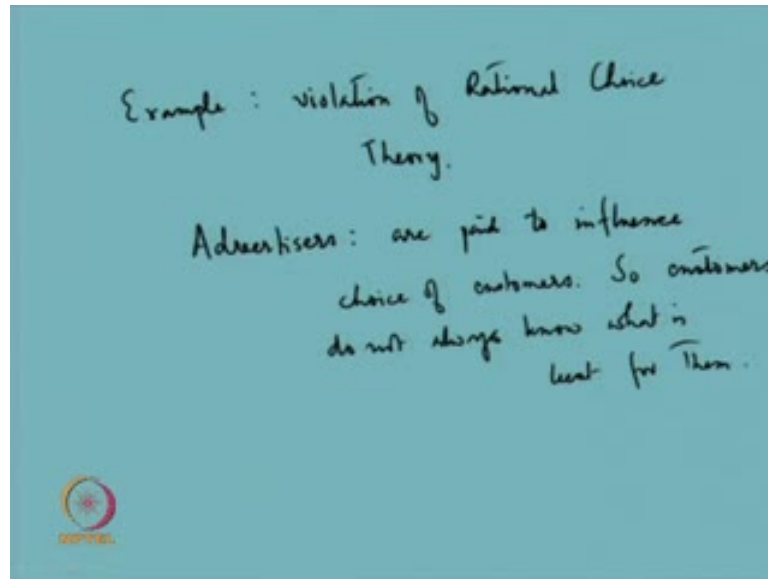 Example : violation of Rational Choice
Theory.
Advertisers : are paid to influence
choice of customers. So customers
do not always know what is
best for Them.
NPTEL